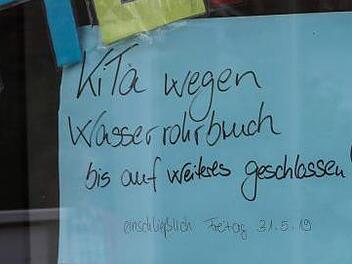 KiTa wegen
Wasserrohrbruch
bis auf weiteres geschlossen!
einschließlich Freitag 31.5.19